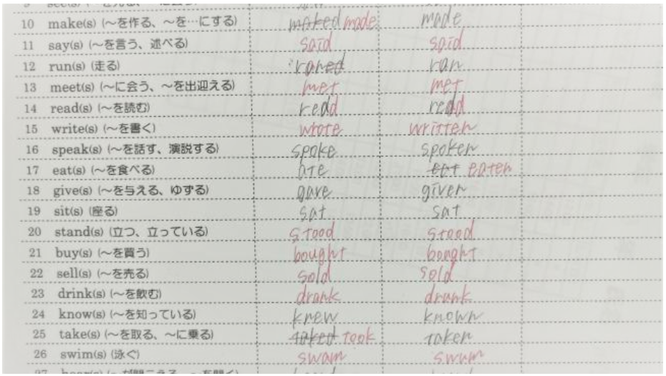 10 make(s) (〜を作る、〜を…にする) maked made made
11 say(s) (〜を言う、述べる) said said
12 run(s) (走る) raned ran
13 meet(s) (〜に会う、〜を出迎える) met met
14 read(s) (〜を読む) read read
15 write(s) (〜を書く) wrote written
16 speak(s) (〜を話す、演説する) spoke spoken
17 eat(s) (〜を食べる) ate eat eaten
18 give(s) (〜を与える、ゆずる) gave given
19 sit(s) (座る) sat sat
20 stand(s) (立つ、立っている) stood stood
21 buy(s) (〜を買う) bought bought
22 sell(s) (〜を売る) sold sold
23 drink(s) (〜を飲む) drank drunk
24 know(s) (〜を知っている) knew known
25 take(s) (〜を取る、〜に乗る) taked took taken
26 swim(s) (泳ぐ) swam swum